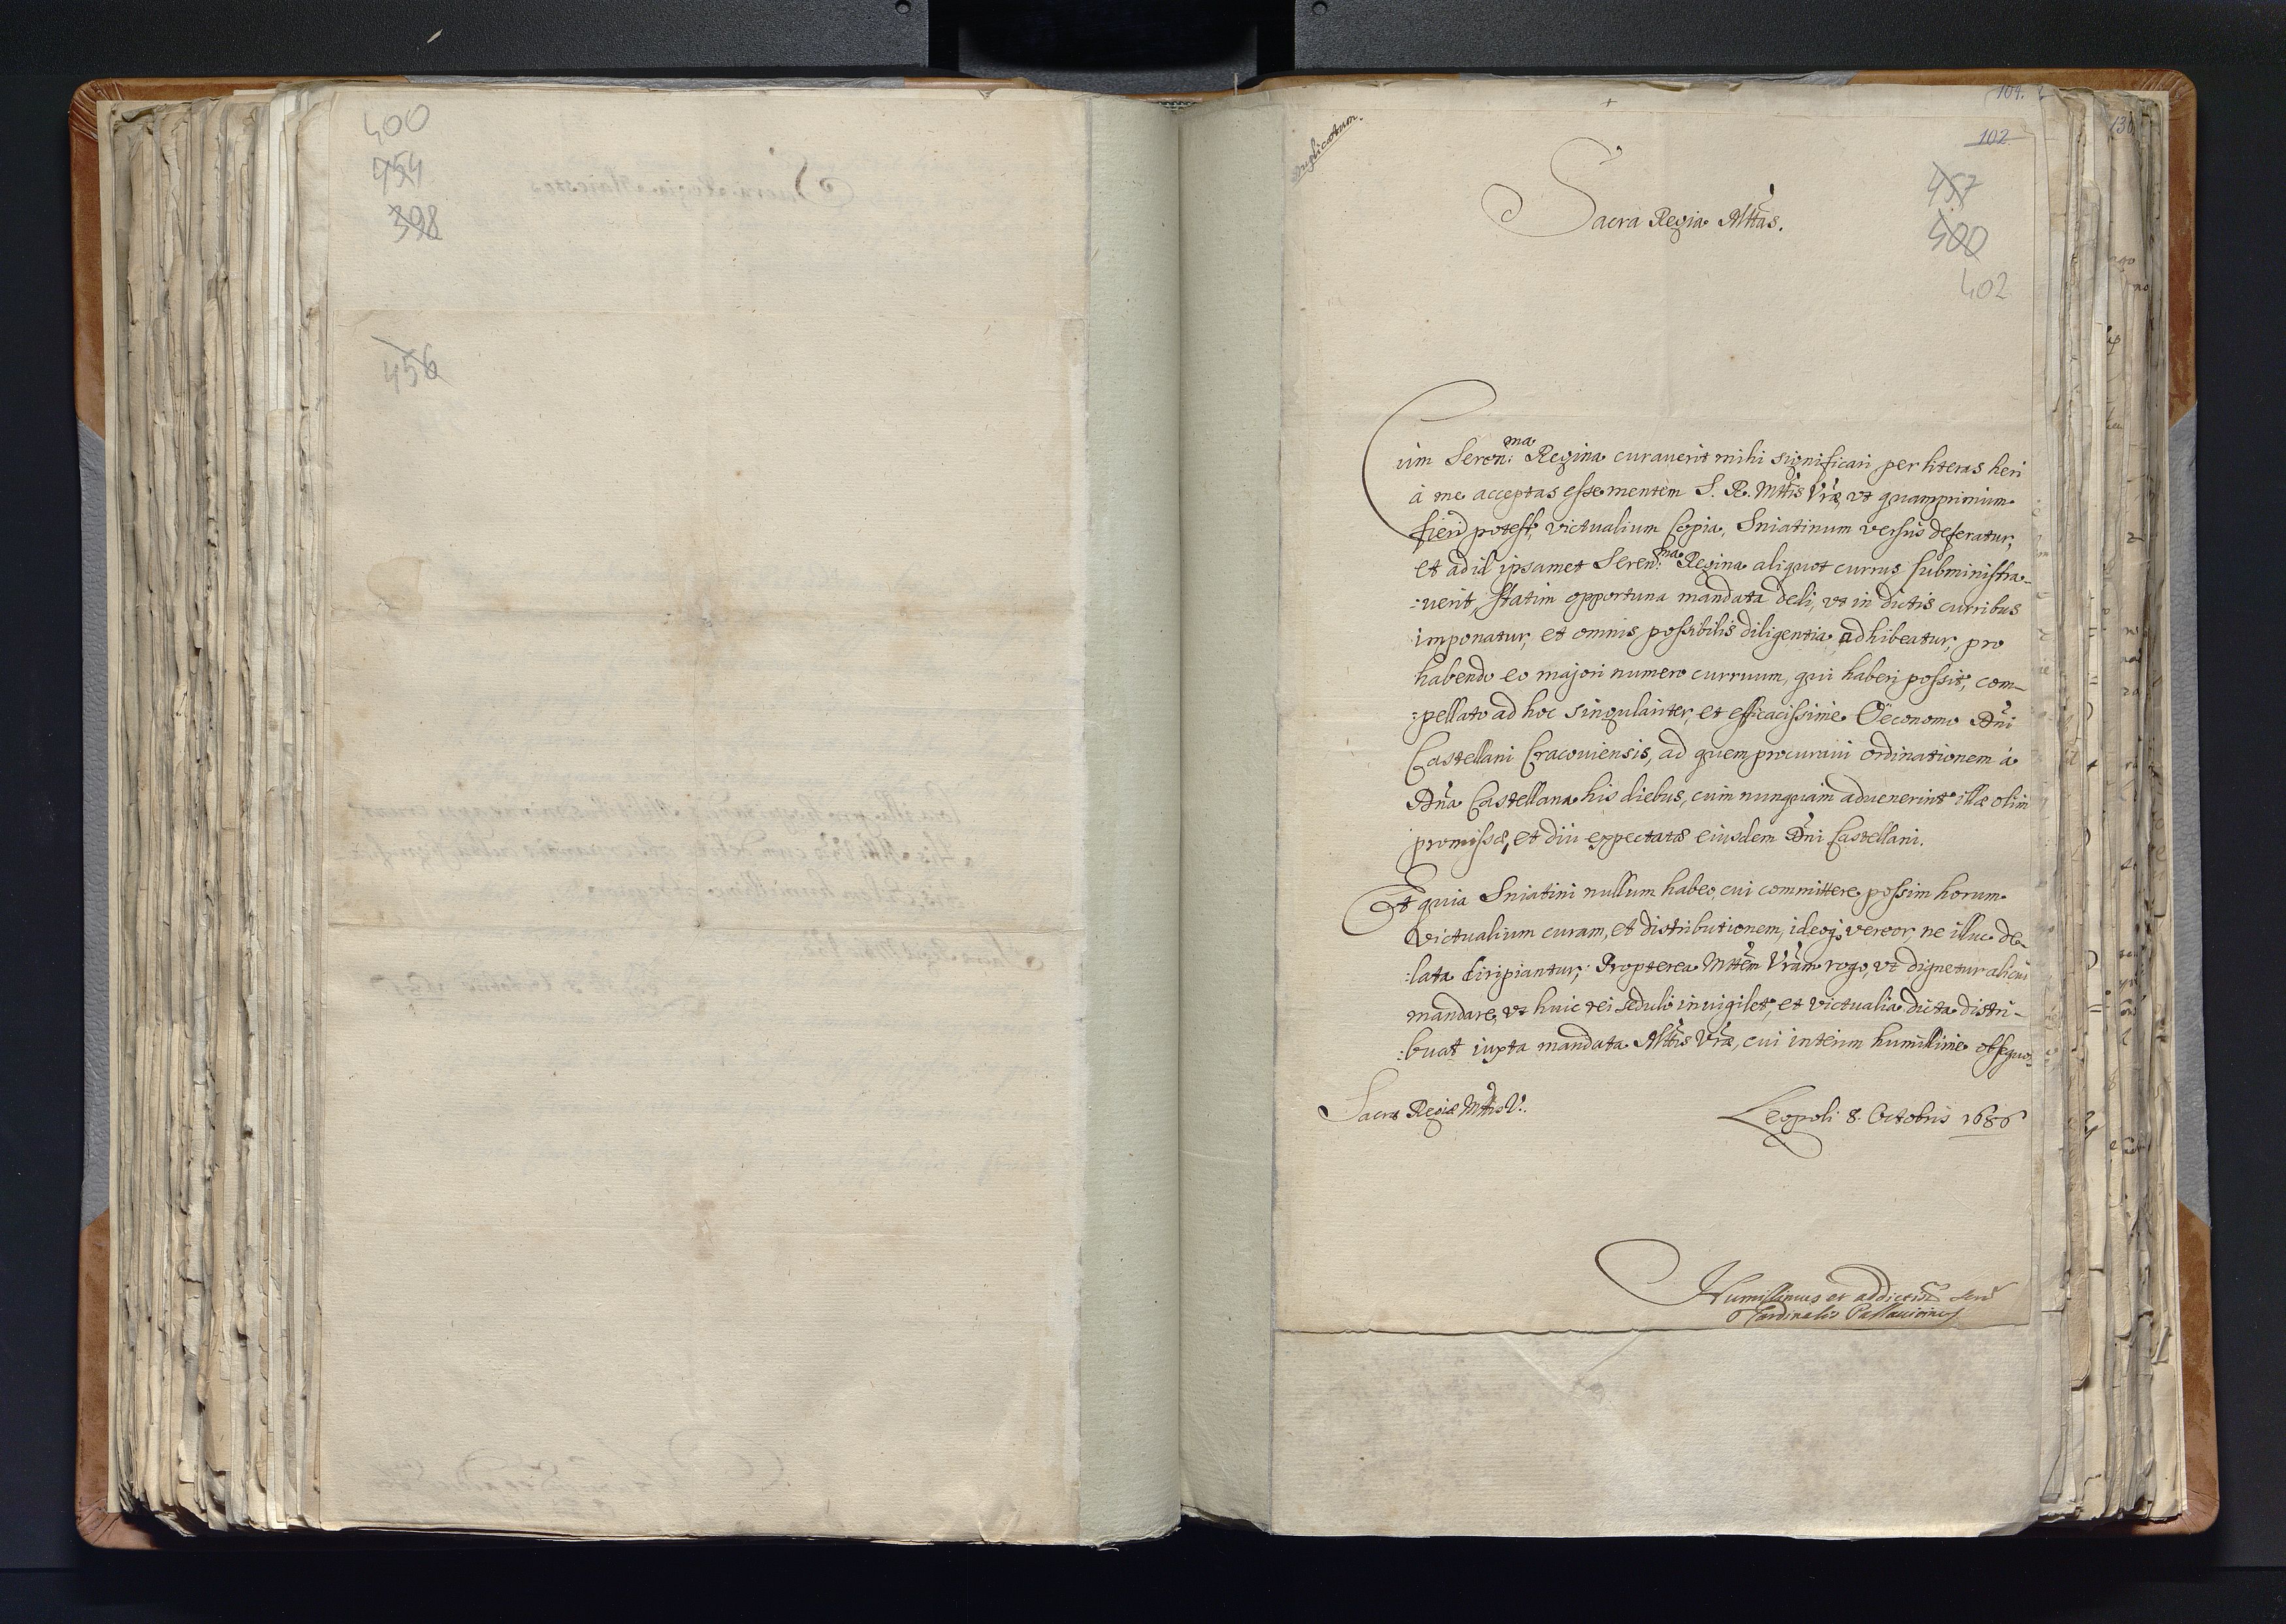 400
454
398
456
Duplicatum.
104.
102
457
400
402
130
Sacra Regia Mttas.
Cum Seren:ma Regina curauerit mihi significari per literas heri
à me acceptas esse mentem S. R. Mttis Vræ, vt quamprimum
fieri potest, victualium Copia, Sniatinum versus deferatur,
et ad id ipsamet Seren:ma Regina aliquot currus subministra-
:uerit, statim opportuna mandata dedi, vt in dictis curribus
imponatur, et omnis possibilis diligentia adhibeatur, pro
habendo eo majori numero curruum, qui haberi possit, com-
:pellato ad hoc singulariter, et efficacissime Oëconomo Dni
Castellani Cracouiensis, ad quem procuraui ordinationem à
Dna Castellana his diebus, cum nunquam aduenerint illæ olim
promissæ, et diu expectatæ eiusdem Dni Castellani.
Et quia Sniatini nullum habeo, cui committere possim horum
victualium curam, et distributionem, ideoq; vereor, ne illuc de-
:lata diripiantur; Propterea Mttem Vram rogo, vt dignetur alicui
mandare, vt huic rei sedulò inuigilet, et victualia dicta distri-
:buat iuxta mandata Mttis Vræ, cui interim humillime obsequor
Sacræ Regiæ Mttis V:.
Leopoli 8. Octobris 1686
Humillimus et addictiss seru
Cardinalis Pallauicinus